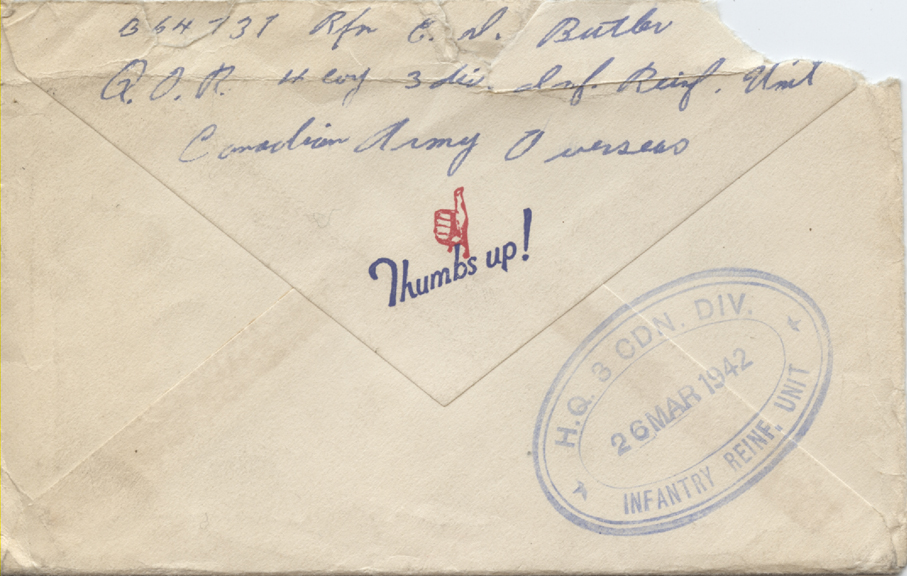 B64737 Rfn E. D. Butler
Q.O.R. 4 coy 3 div. Inf. Reinf. Unit
Canadian Army Overseas
Thumbs up!
H.Q. 3 CDN. DIV.
26 MAR 1942
INFANTRY REINF. UNIT